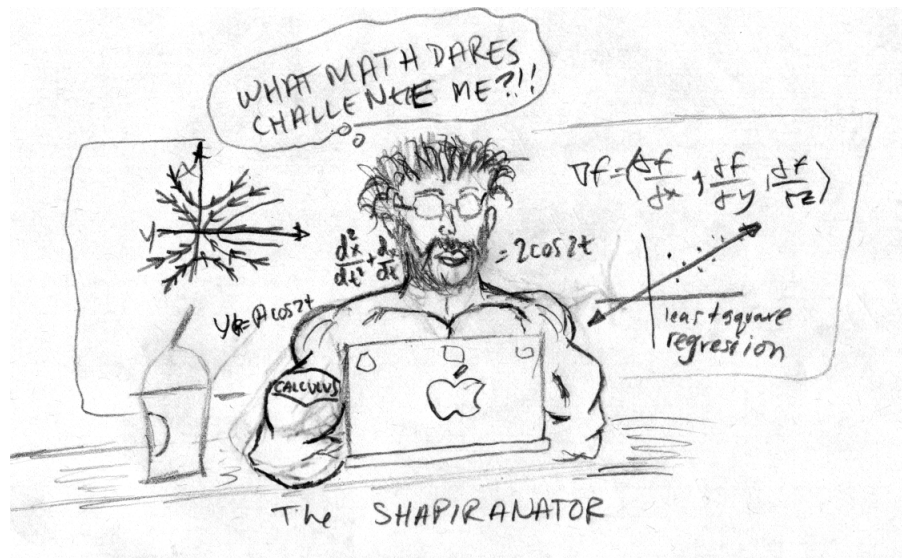 WHAT MATH DARES
CHALLENGE ME?!!
y
d²x/dt² + dx/dt = 2cos2t
∇f=⟨∂f/∂x, ∂f/∂y, ∂f/∂z⟩
least square
regression
CALCULUS
The SHAPIRANATOR